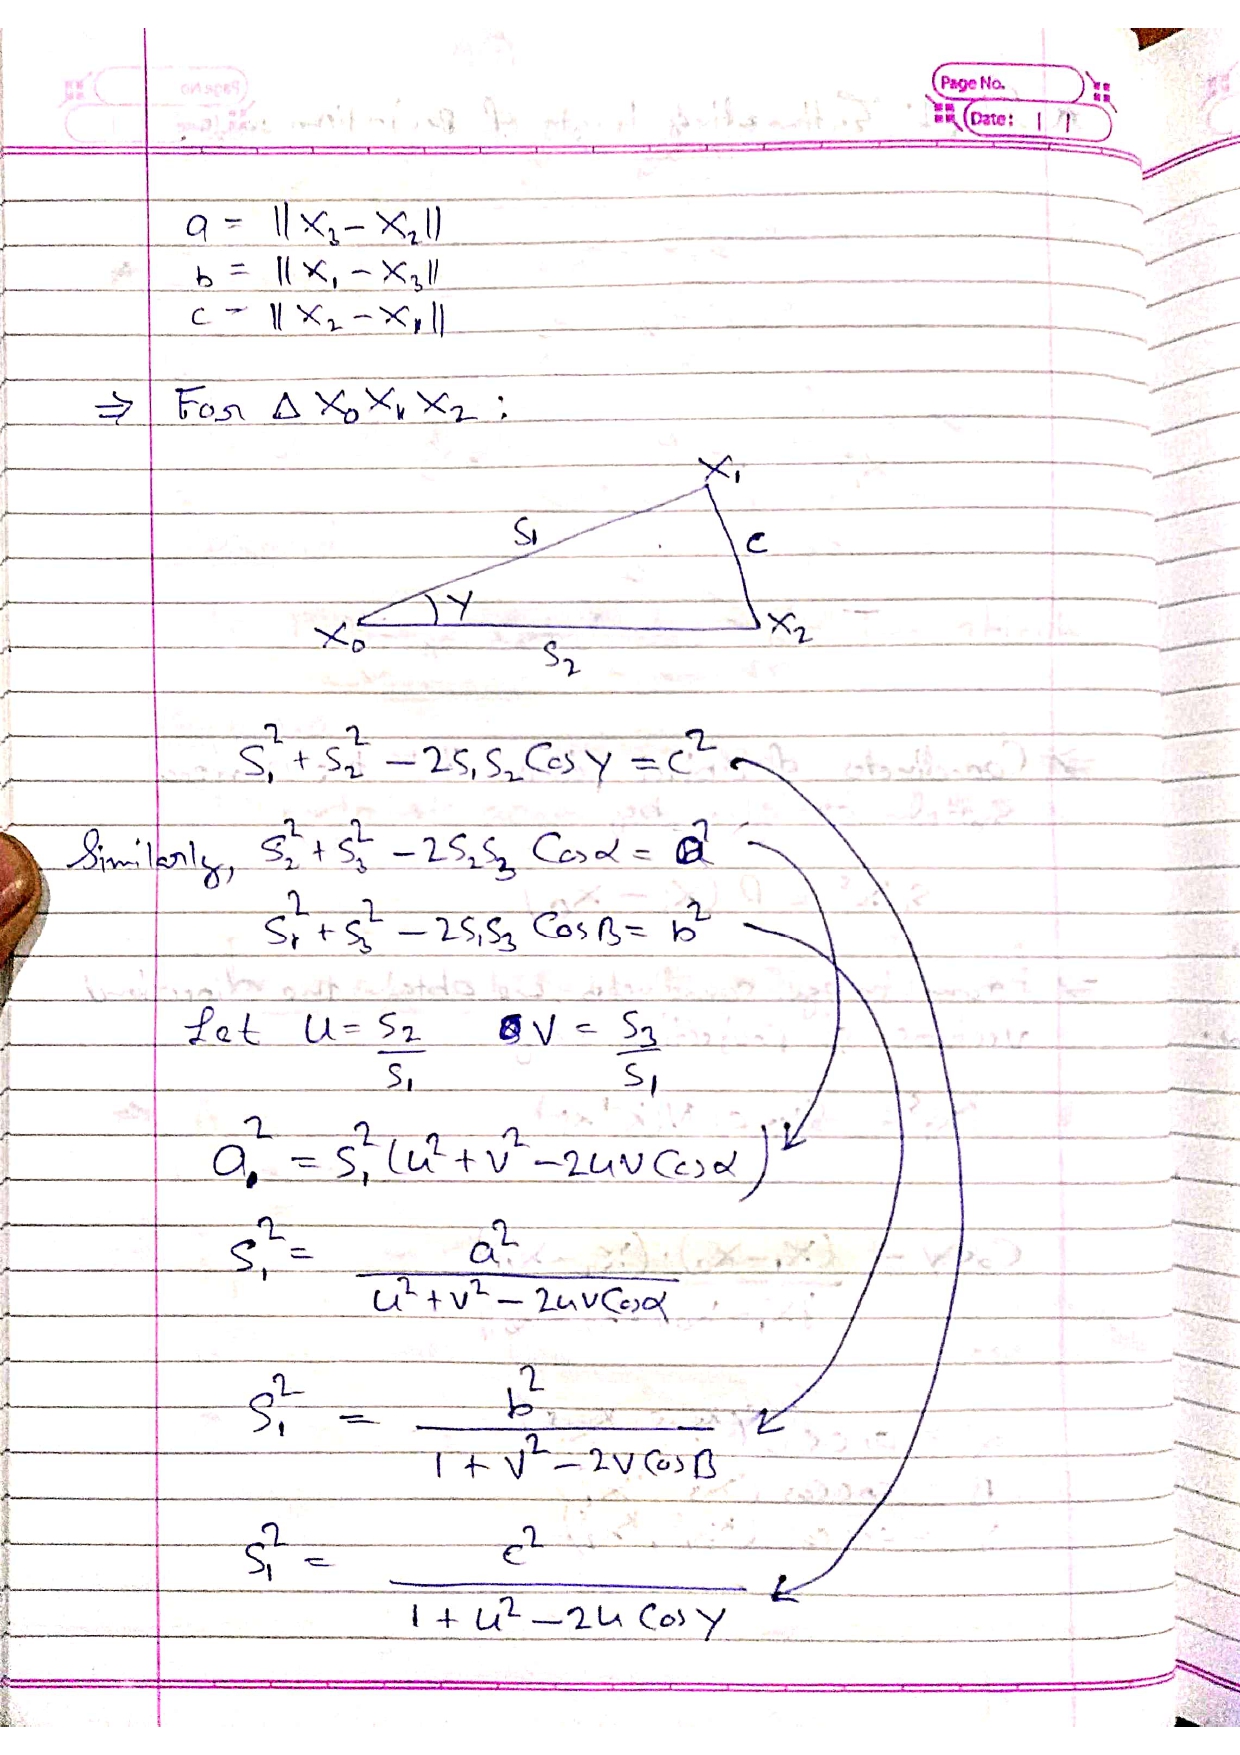 Page No.
Date: / /
a = ||X₃ - X₂||
b = ||X₁ - X₃||
c = ||X₂ - X₁||
⇒ For Δ X₀X₁X₂ :
X₁
S₁
c
γ
X₀
X₂
S₂
S₁² + S₂² - 2S₁S₂ Cos γ = c²
Similarly, S₂² + S₃² - 2S₂S₃ Cos α = a²
S₁² + S₃² - 2S₁S₃ Cos β = b²
Let u = S₂/S₁ v = S₃/S₁
a² = S₁² (u² + v² - 2uv Cos α)
S₁² = a² / u² + v² - 2uv Cos α
S₁² = b² / 1 + v² - 2v Cos β
S₁² = c² / 1 + u² - 2u Cos γ